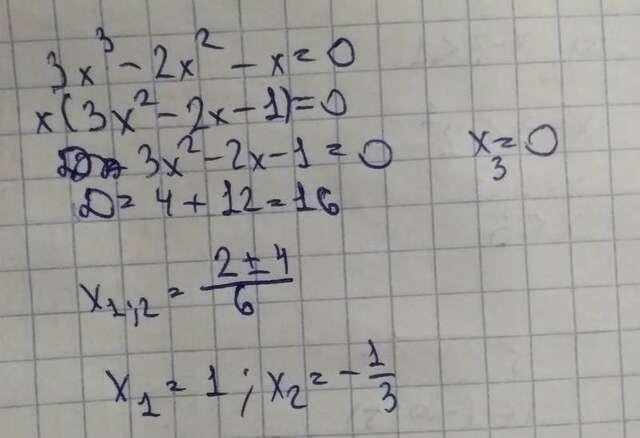 3x³ - 2x² - x = 0
x(3x² - 2x - 1) = 0
3x² - 2x - 1 = 0
x₃ = 0
D = 4 + 12 = 16
x₁;₂ = (2 ± 4)/6
x₁ = 1 ; x₂ = -1/3